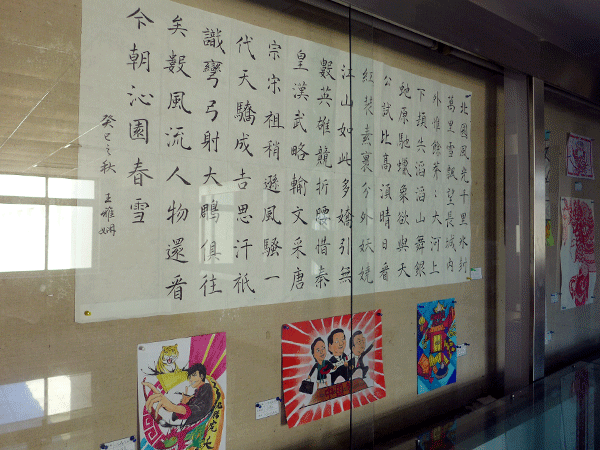 北國風光千里冰封
萬里雪飄望長城內
外惟餘莽：大河上
下頓失滔滔山舞銀
蛇原馳蠟象欲與天
公試比高須晴日看
紅裝素裹分外妖嬈
江山如此多嬌引無
數英雄競折腰惜秦
皇漢武略輸文采唐
宗宋祖稍遜風騷一
代天驕成吉思汗祇
識彎弓射大鵰俱往
矣數風流人物還看
今朝沁園春雪
癸巳之秋 王雅